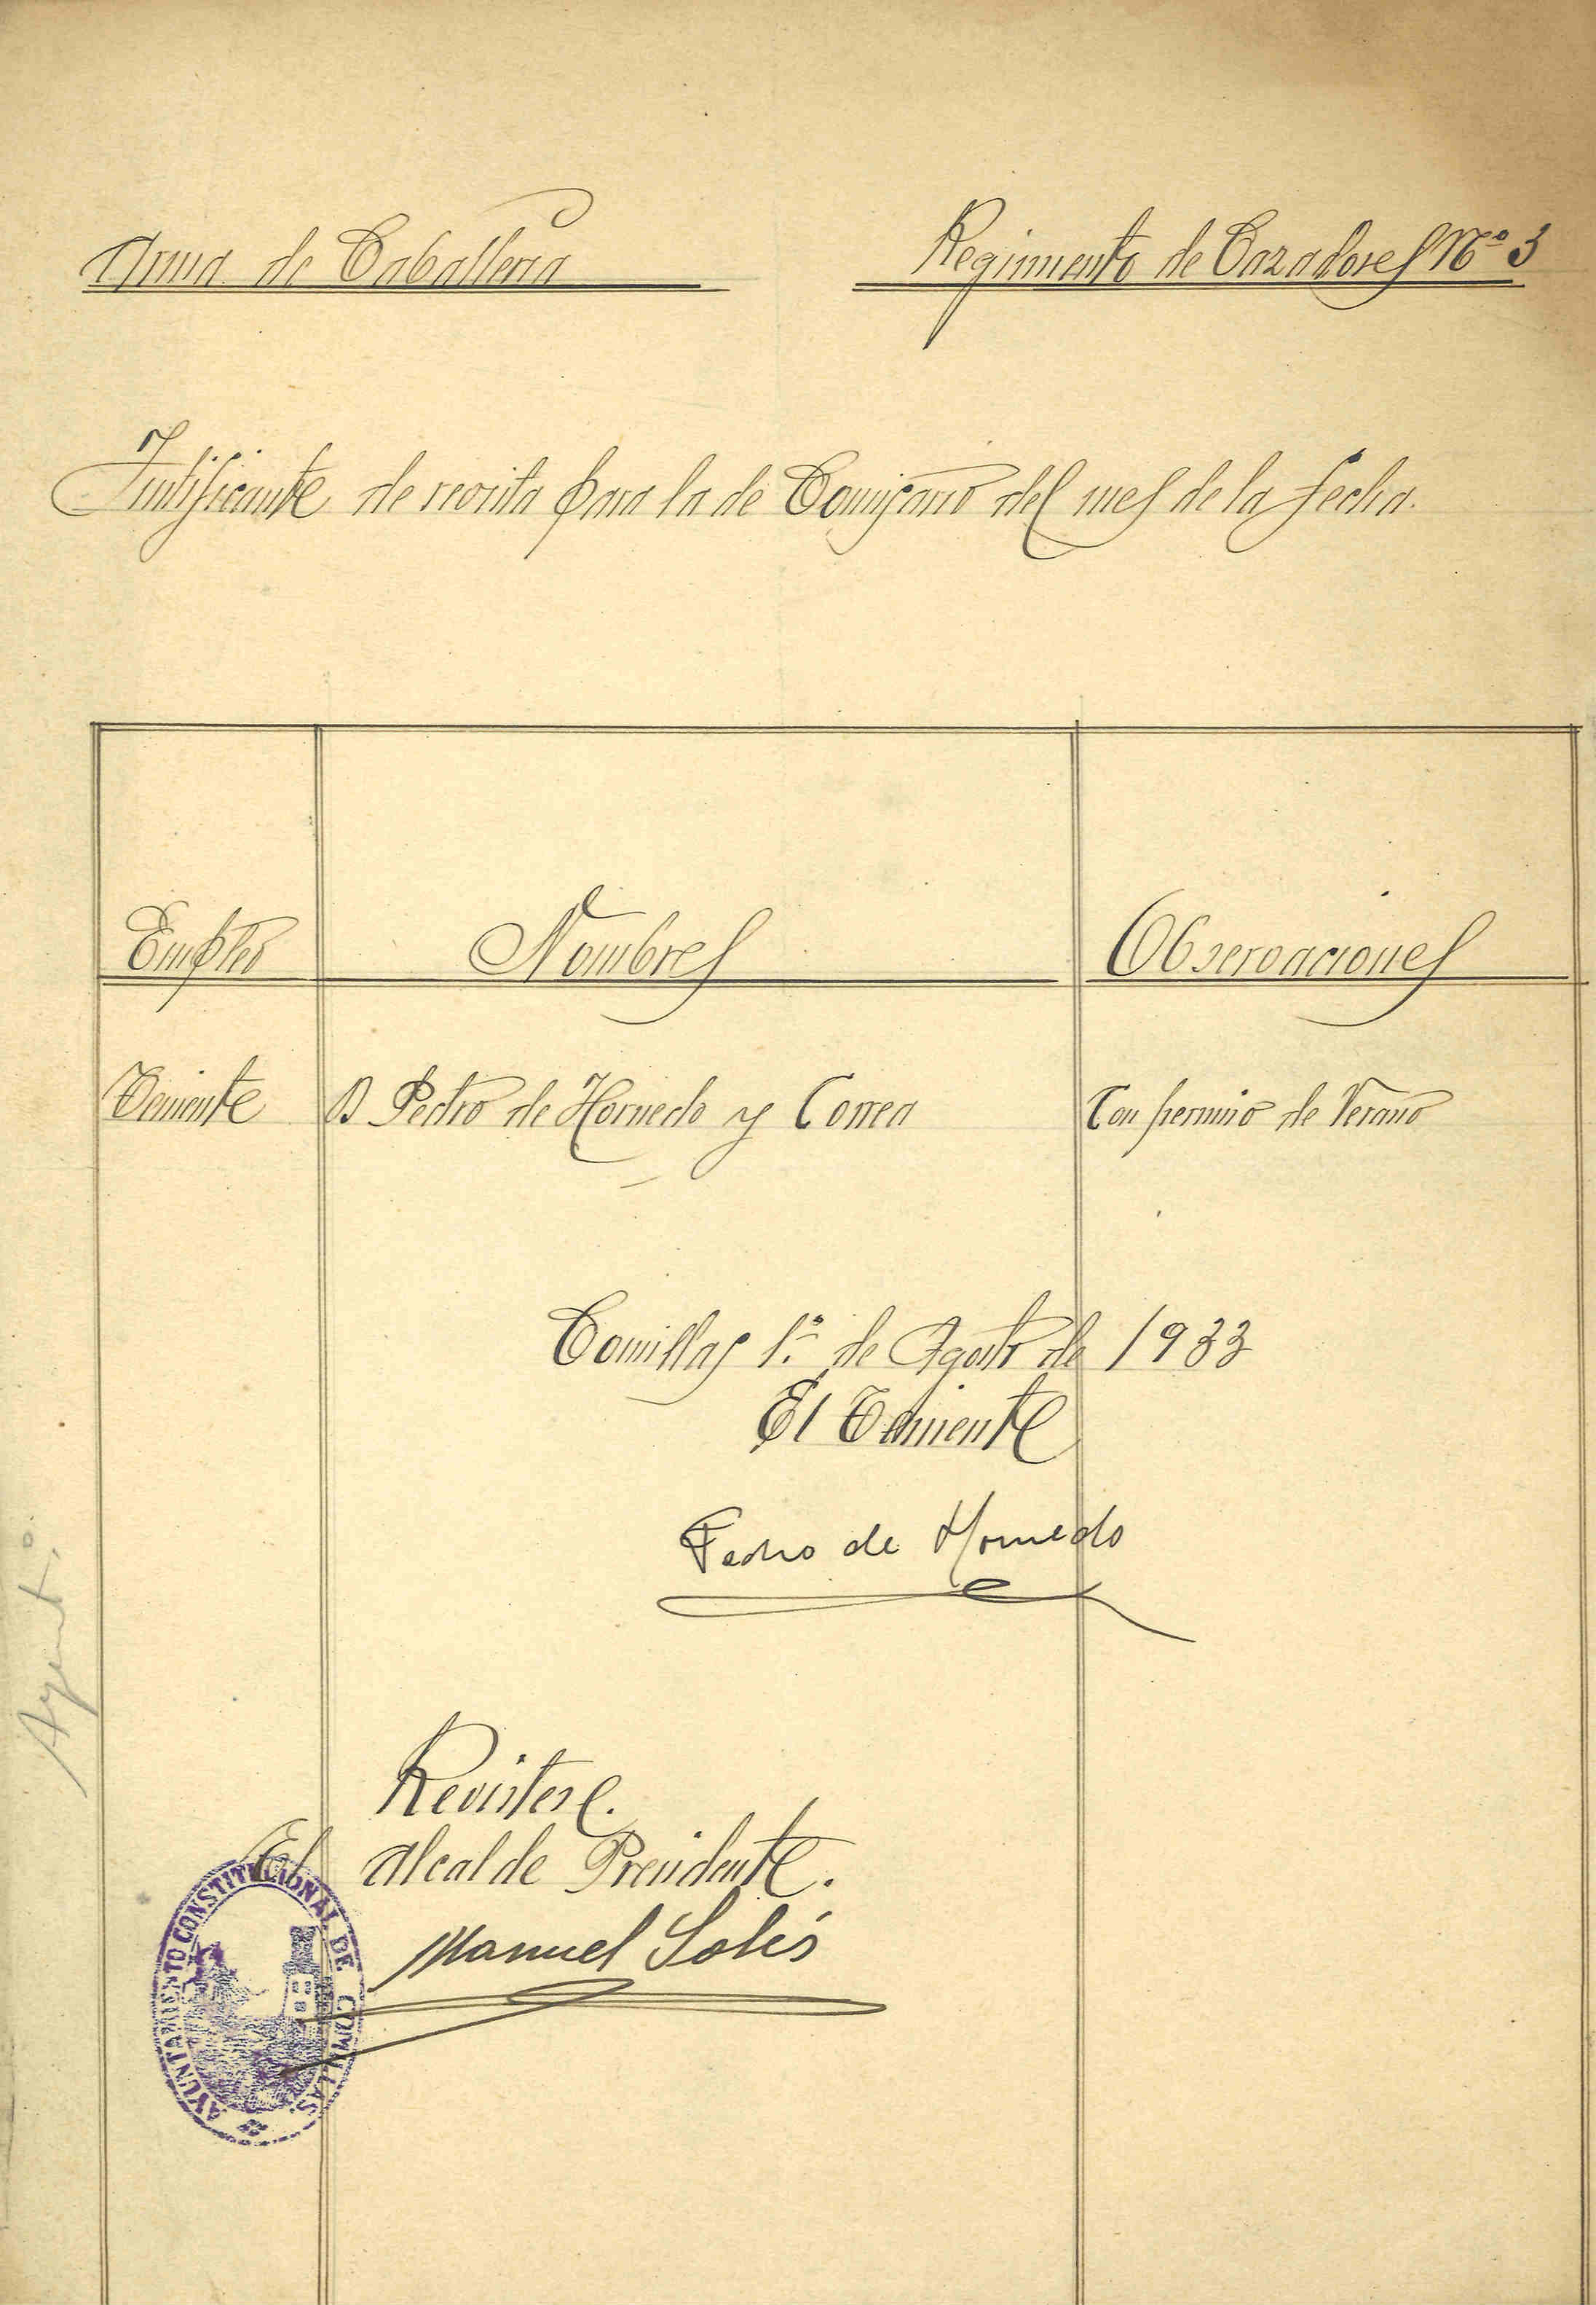 Arma de Caballeria
Regimiento de Cazadores Nº 3
Justificante de revista para la de Comisario del mes de la fecha.
Empleo
Nombres
Observaciones
Teniente
D Pedro de Hornedo y Correa
Con permiso de Verano
Comillas 1.º de Agosto de 1933
El Teniente
Pedro de Hornedo
Ayunt.º
Revistese.
El alcalde Presidente.
Manuel Solís
AYUNTAMIENTO CONSTITUCIONAL DE COMILLAS.